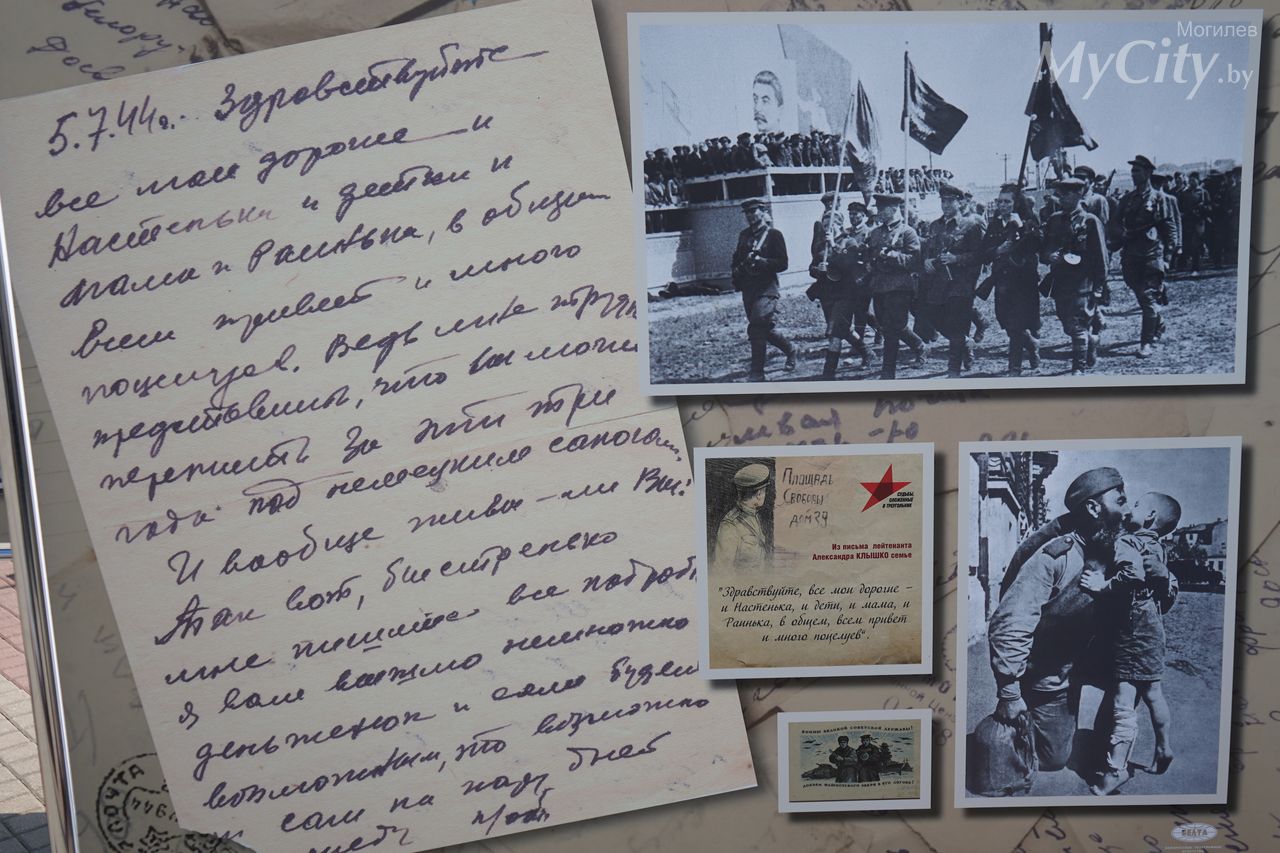 5.7.44г. Здравствуйте
все мои дорогие – и
Настенька и детки и
мама и Раинька, в общем
всем привет и много
поцелуев. Ведь мне трудн
представить, что вы могли
пережить за эти три
года под немецким сапогом.
И вообще живы – ли Вы?
Так вот, быстренько
мне пишите все подробн
я вам вышлю немножко
деньженок и если будет
возможным, то возможно
и сам на пару дней
Могилев
MyCity.by
Площадь
Свободы
дом 29
СУДЬБЫ,
СЛОЖЕННЫЕ
В ТРЕУГОЛЬНИК
Из письма лейтенанта
Александра КЛЫШКО семье
"Здравствуйте, все мои дорогие –
и Настенька, и дети, и мама, и
Раинька, в общем, всем привет
и много поцелуев".
ВОИНЫ ВЕЛИКОЙ СОВЕТСКОЙ ДЕРЖАВЫ!
ДОБЬЕМ ФАШИСТСКОГО ЗВЕРЯ В ЕГО ЛОГОВЕ!
ПОЧТА
1944
БЕЛТА